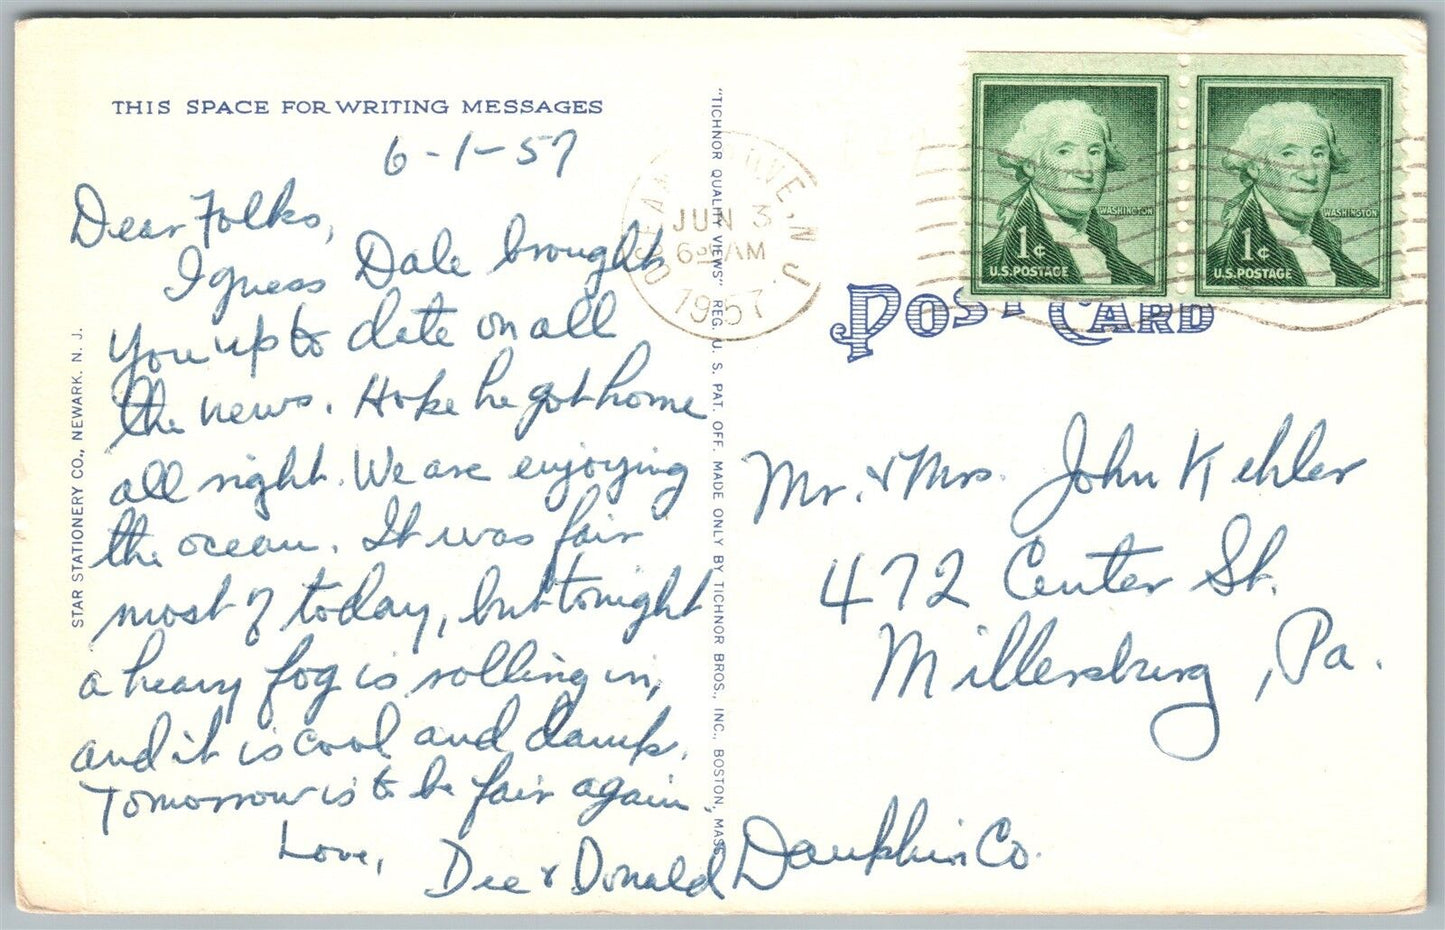 THIS SPACE FOR WRITING MESSAGES
6-1-57
Dear Folks,
I guess Dale brought
you up to date on all
the news. Hope he got home
all right. We are enjoying
the ocean. It was fair
most of today, but tonight
a heavy fog is rolling in,
and it is cool and damp.
Tomorrow is to be fair again.
Love,
Dee & Donald
STAR STATIONERY CO., NEWARK, N. J.
"TICHNOR QUALITY VIEWS" REG. U. S. PAT. OFF. MADE ONLY BY TICHNOR BROS., INC., BOSTON, MASS.
OCEAN GROVE, N. J.
JUN 3
AM
1957
WASHINGTON
1¢
U.S. POSTAGE
WASHINGTON
1¢
U.S. POSTAGE
POST CARD
Mr. & Mrs. John Kehler
472 Center St.
Millersburg, Pa.
Dauphin Co.